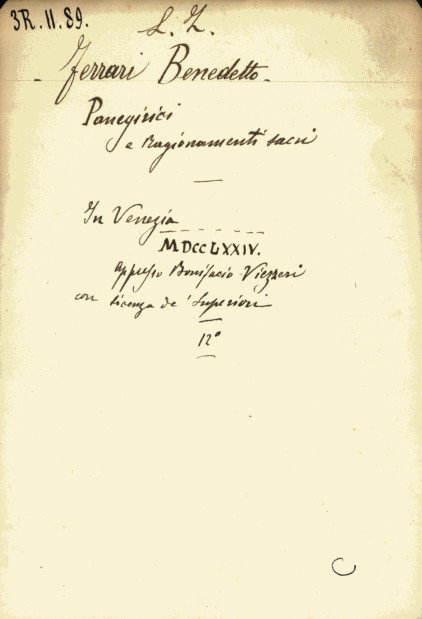 3R. 11. 89.
L. Z.
Ferrari Benedetto.
Panegirici
e Ragionamenti sacri
In Venezia
MDCCLXXIV.
appresso Bonifacio Viezzeri
con licenza de' Superiori
12°
C